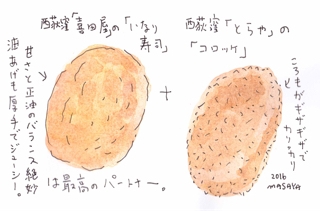 西荻窪「喜田屋」の「いなり
寿司」
甘さと正油のバランス絶妙
油あげも厚手でジューシー。
+
西荻窪「とらや」の
「コロッケ」
ころもがギザギザで
カリッカリ
と
は最高のパートナー。
2016
MASAYA